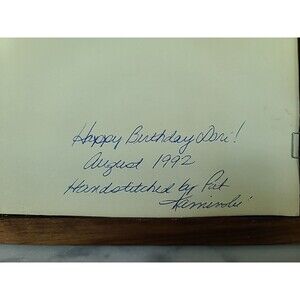 Happy Birthday Dori!
August 1992
Handstitched by Pat